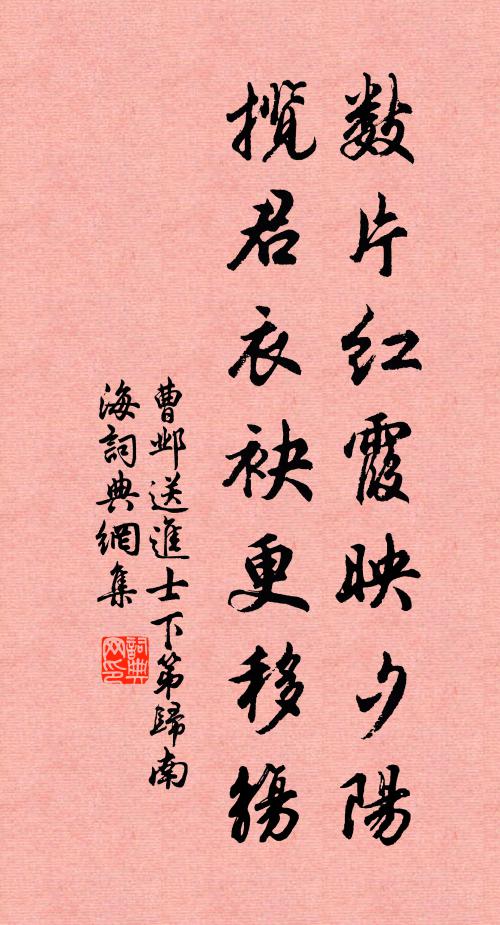 数片红霞映夕陽
揽君衣袂更移觴
曹邺送進士下第歸南
海詞典網集
詞典
网印